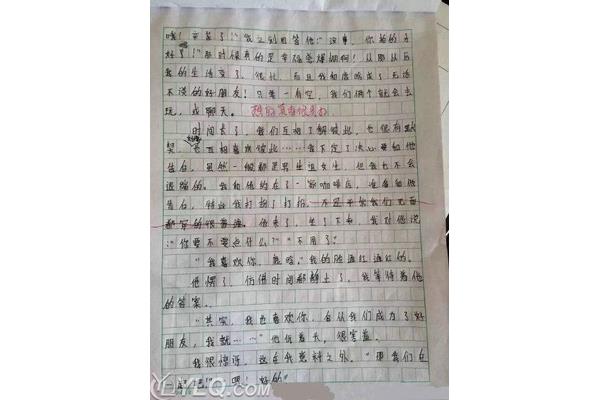 哦！完蛋了！"我立刻回答他"没事，你若的身
好了！"那时候真的是幸福感爆棚啊！从那以后
我的生活变了，很忙，而且我和唐晓成了无话
不谈的好朋友！只要一有空，我们俩个就会去
玩，或聊天。
时间长了，我们互相了解彼此，也很有默
契，也互相喜欢彼此……我下定了决心要和他
告白，虽然一般都是男生追女生，但我也不会
退缩的。我和他约在了一家咖啡店，准备和他
告白，特地我打扮了打扮。不是平常我们见面
都穿的很普通。他来了，坐了下来，我对他说
："你要不要点什么？""不用了。"
"我喜欢你，唐晓。"我的脸通红通红的。
他愣了，仿佛时间都静止了，我等待着他
的答案。
"其实，我也喜欢你，自从我们成为了好
朋友，我就……"他低着头，很害羞。
我很惊讶，这在我意料之外。"那我们在
起吧！""嗯，好的"
YLYEQ.COM